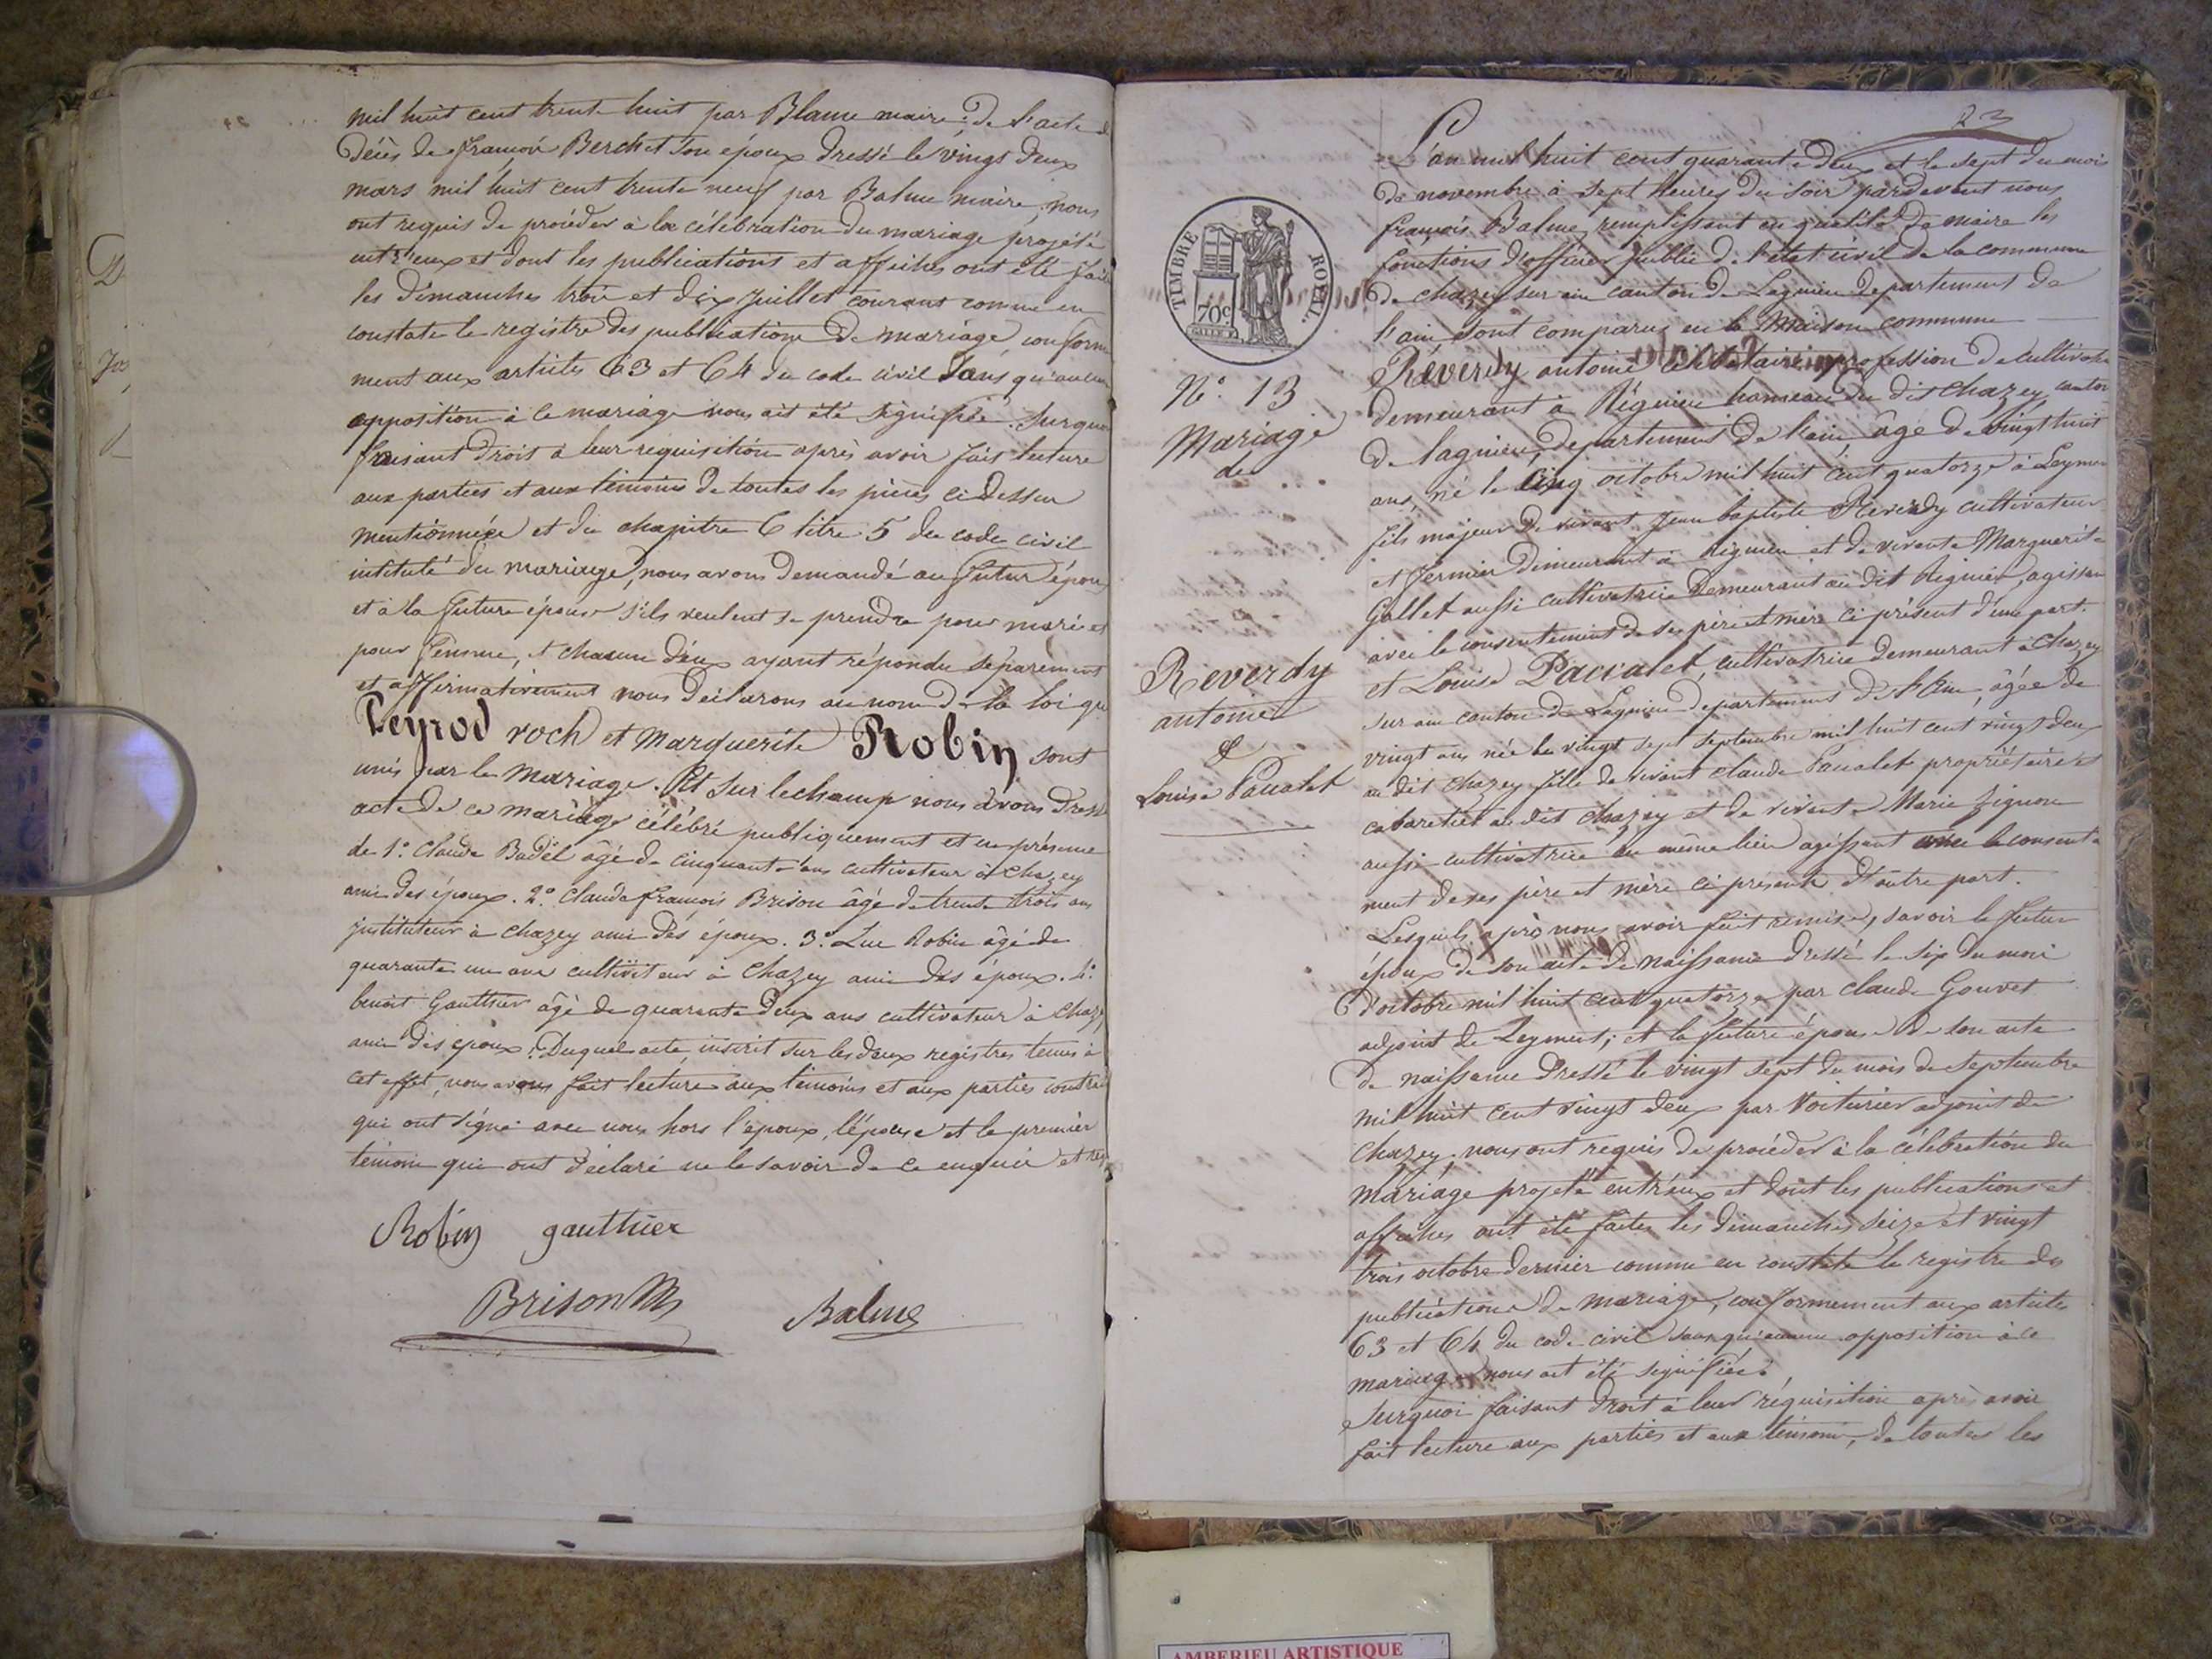 mil huit cent trente huit par Blame maire. de l'acte de
décès de françois Berchet son époux dressé le vingt deux
mars mil huit cent trente neuf par Balme maire, nous
ont requis de procéder à la célébration du mariage projeté
entr'eux et dont les publications et affiches ont été fait
les dimanches trois et dix juillet courant comme en
constate le registre des publications de mariage, conformé
ment aux articles 63 et 64 du code civil sans qu'aucune
opposition à ce mariage nous ait été signifiée. Sur quoi
faisant droit à leur requisition après avoir fait lecture
aux parties et aux témoins de toutes les pièces ci dessus
mentionnées et du chapitre 6 titre 5 du code civil
intitulé du mariage, nous avons demandé au futur époux
et à la future épouse s'ils veulent se prendre pour mari et
pour femme, et chacun d'eux ayant répondu séparément
et affirmativement nous déclarons au nom de la loi que
Peyrod roch et Marguerite Robin sont
unis par le mariage. Et sur le champ nous avons dressé
acte de ce mariage célébré publiquement et en présence
de 1.º Claude Badel âgé de cinquante ans cultivateur à Chazey
ami des époux. 2.º Claude françois Brison âgé de trente trois ans
instituteur à Chazey ami des époux. 3.º Luc Robin âgé de
quarante un ans cultiviteur à Chazey ami des époux. 4.º
benoit Gauthier âgé de quarante deux ans cultivateur à Chazey
ami des époux. Duquel acte inscrit sur les deux registres tenus à
cet effet, nous avons fait lecture aux témoins et aux parties contra
qui ont signé avec nous hors l'époux, l'épouse et le premier
témoin qui ont déclaré ne le savoir de ce enquis et re
Robin gauthier
Brison Balme
23
TIMBRE ROYAL.
70c
L'an mil huit cent quarante deux et le sept du mois
de novembre à sept heures du soir pardevant nous
françois Balme, remplissant en qualité de maire les
fonctions d'officier public de l'état civil de la commune
de chazey sur ain canton de Lagnieu departement de
l'ain sont comparus en la maison commune
Réverdy antoine célibataire profession de cultivateur
demeurant à Rignieu hameau du dit Chazey canton
de lagnieu, departement de l'ain âgé de vingt huit
ans, né le cinq octobre mil huit cent quatorze à Leyment
fils majeur de vivant Jean baptiste Réverdy cultivateur
et fermier demeurant à Rignieu et de vivante Marguerite
Gallet aussi cultivatrice demeurant au dit Rignieu, agissant
avec le consentement de ses père et mère ci présent d'une part.
et Louise Paccalet, cultivatrice demeurant à Chazey
sur ain canton de Lagnieu departement de l'Ain, âgée de
vingt ans née le vingt sept septembre mil huit cent vingt deux
au dit Chazey fille de vivant Claude Paccalet propriétaire et
cabaretier au dit Chazey et de vivante Marie
aussi cultivatrice au même lieu agissant avec le consente
ment de ses père et mère ci présents d'autre part.
Lesquels après nous avoir fait remise, savoir le futur
époux de son acte de naissance dressé le six du mois
d'octobre mil huit cent quatorze par Claude Gouvet
adjoint de Leyment; et la future épouse de son acte
de naissance dressé le vingt sept du mois de septembre
mil huit cent vingt deux par Voiturier adjoint de
Chazey. nous ont requis de procéder à la célébration du
mariage projeté entr'eux et dont les publications et
affiches ont été faites les dimanches seize et vingt
trois octobre dernier comme en constate le registre des
publications de mariage, conformément aux articles
63 et 64 du code civil sans qu'aucune opposition à ce
mariage nous ait été signifiée.
Sur quoi faisant droit à leur réquisition après avoir
fait lecture aux parties et aux témoins, de toutes les
N.º 13
Mariage
de
Reverdy
antoine
&
Louise Paccalet
AMBERIEU ARTISTIQUE